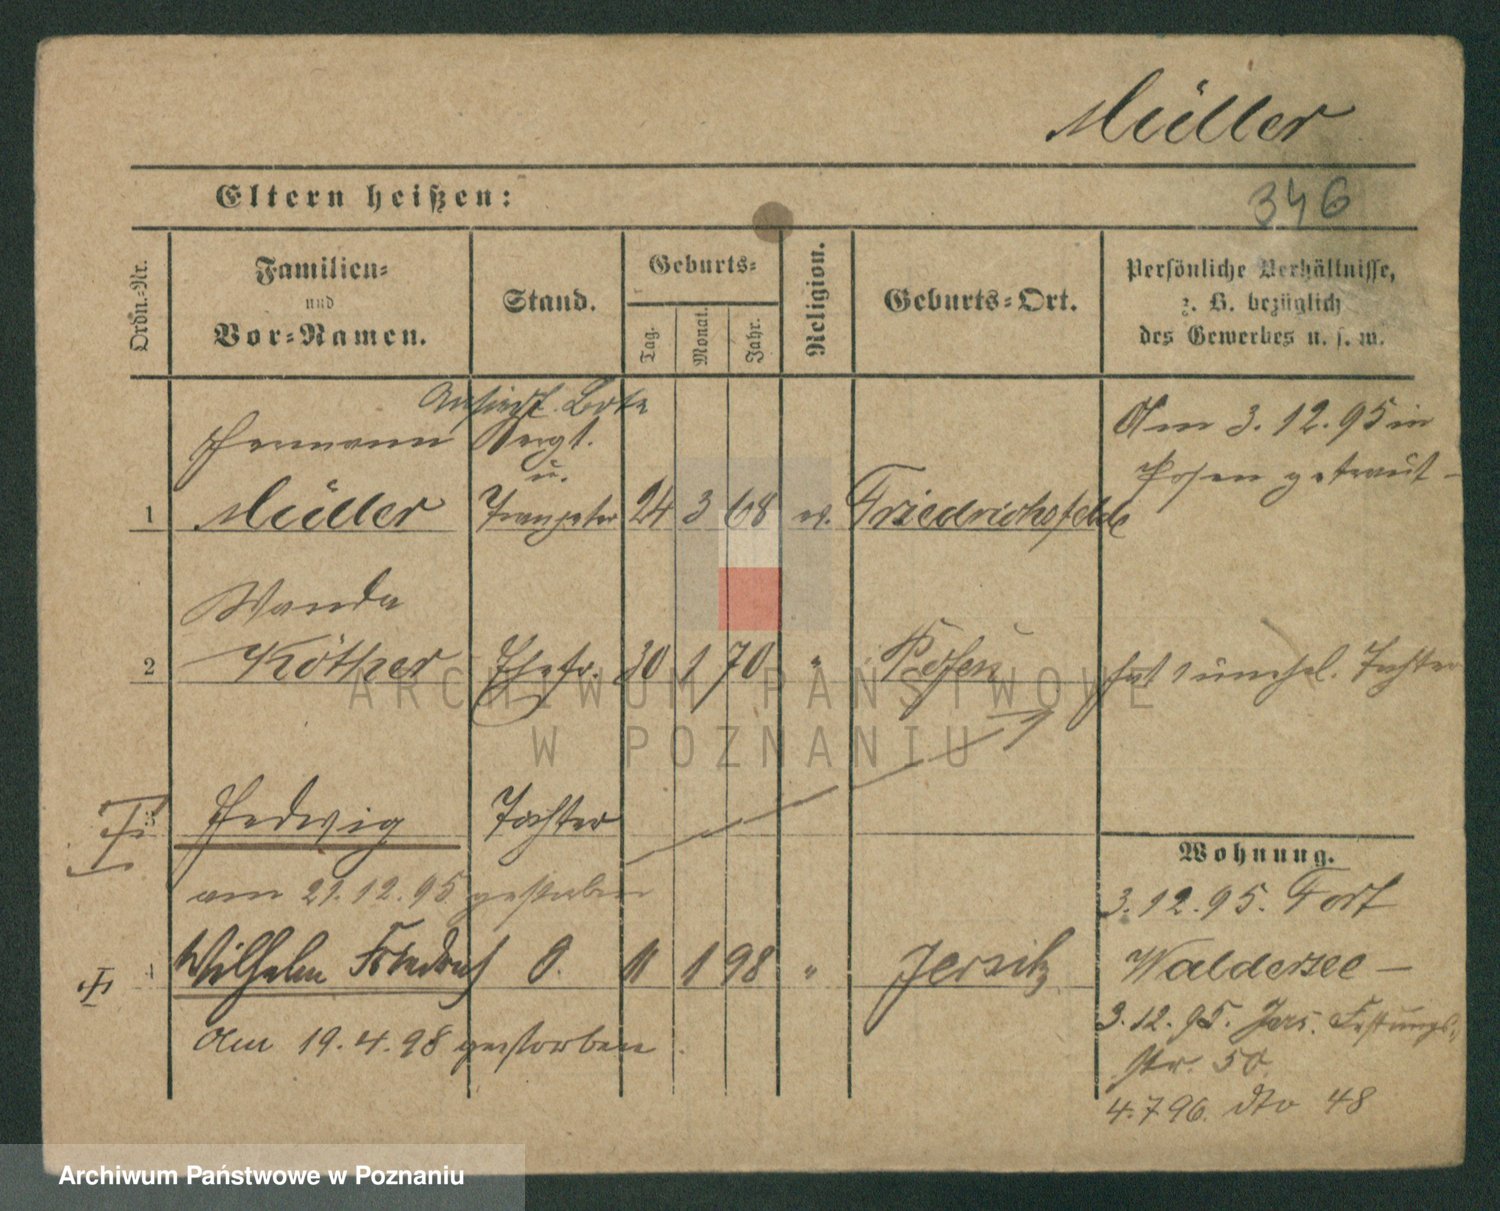 Müller
Eltern heißen:
346
Ordn.-Nr.
Familien-
und
Vor-Namen.
Stand.
Geburts-
Tag.
Monat.
Jahr.
Religion.
Geburts-Ort.
Persönliche Verhältnisse,
z. B. bezüglich
des Gewerbes u. s. w.
Hermann Sergt. Am 3.12.95 in
u. Posen getraut -
1 Müller Trompeter 24 3 68 ev. Friedrichsfelde
Wanda
2 Köther Ehefr. 30 1 70 " Posen hat 1 unehel. Tochter
3 Hedwig Tochter
Wohnung.
am 21.12.95 gestorben
3.12.95. Fort
4 Wilhelm Friedrich S. 11 1 98 " Jersitz
Waldersee -
Am 19.4.98 gestorben.
3.12.95. Jers. Festungs-
str. 50.
4.7.96. dto 48
ARCHIWUM PAŃSTWOWE
W POZNANIU
Archiwum Państwowe w Poznaniu